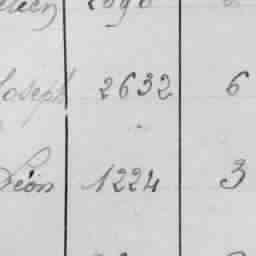 Joseph 2632 6
Léon 1224 3